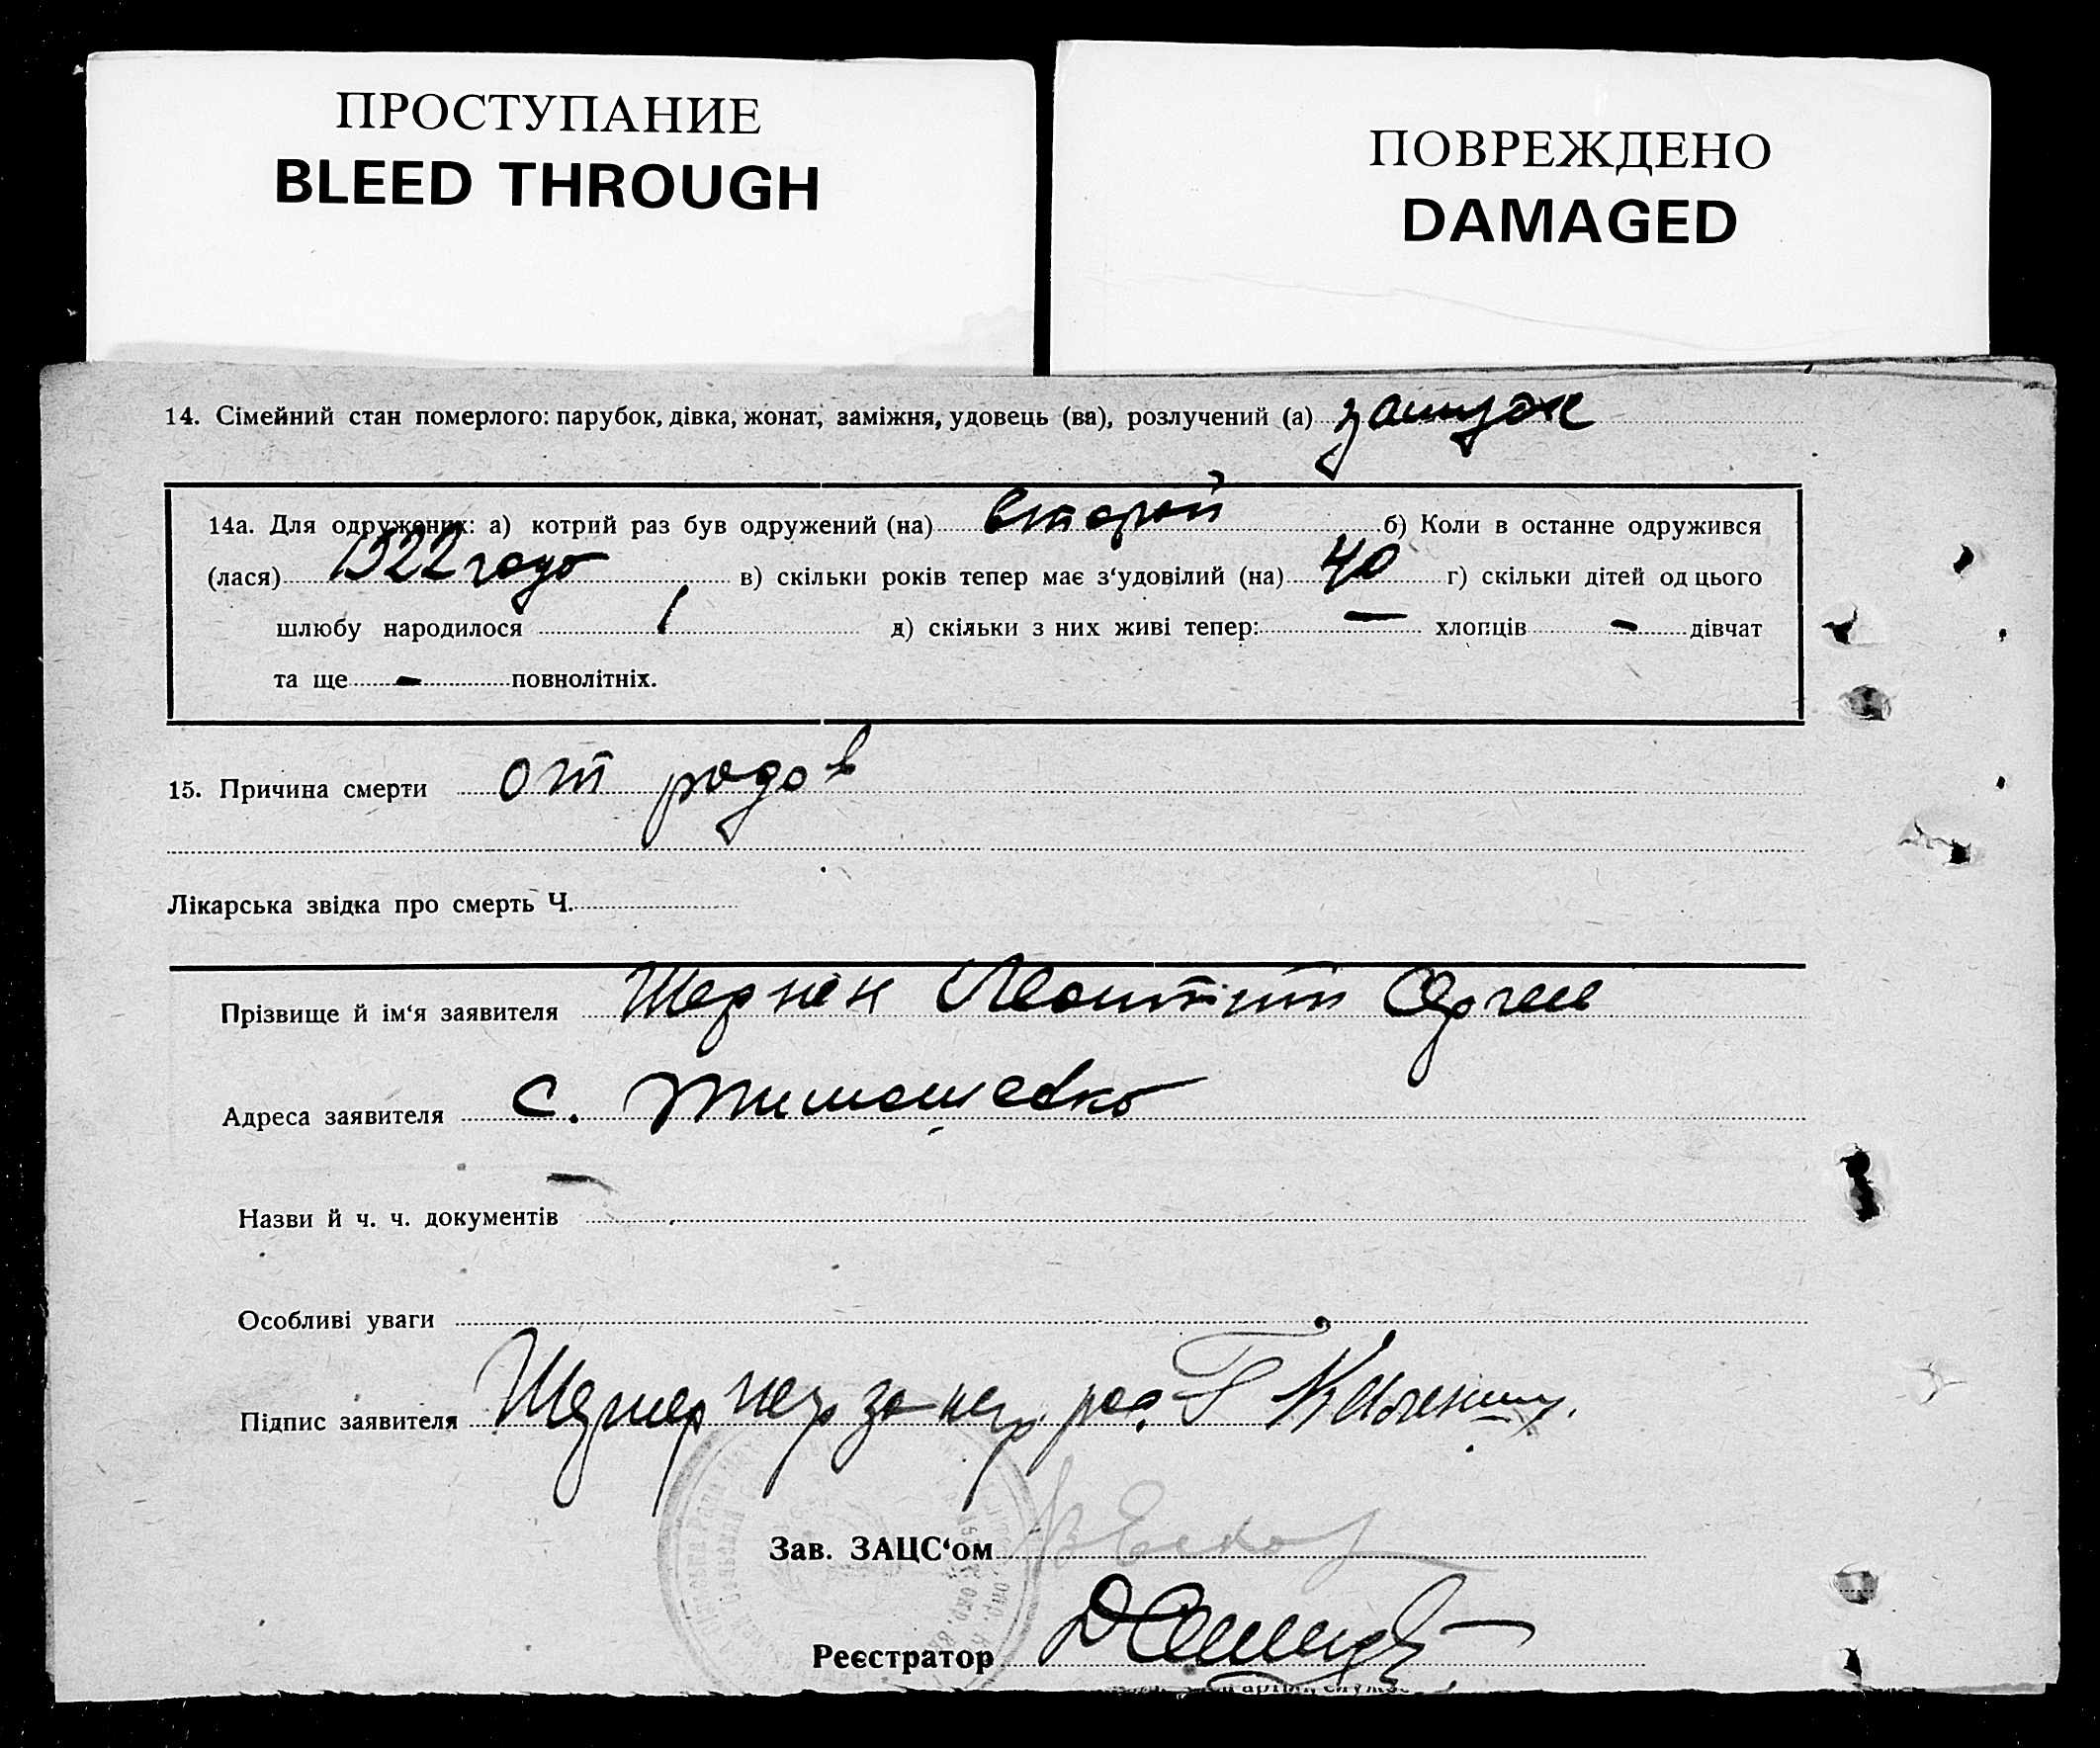 ПРОСТУПАНИЕ
BLEED THROUGH
ПОВРЕЖДЕНО
DAMAGED
14. Сімейний стан померлого: парубок, дівка, жонат, заміжня, удовець (ва), розлучений (а) замуж
14а. Для одружених: а) котрий раз був одружений (на) второй б) Коли в останне одружився
(лася) 1922 году в) скільки років тепер має з‘удовілий (на) 40 г) скільки дітей од цього
шлюбу народилося 1 д) скільки з них живі тепер: — хлопців - дівчат
та ще - повнолітніх.
15. Причина смерти от родов
Лікарська звідка про смерть Ч.
Прізвище й ім‘я заявителя Леонтий
Адреса заявителя с. Тимошевка
Назви й ч. ч. документів —
Особливі уваги
Підпис заявителя нгр за нгр рос.
Зав. ЗАЦС‘ом
Реєстратор